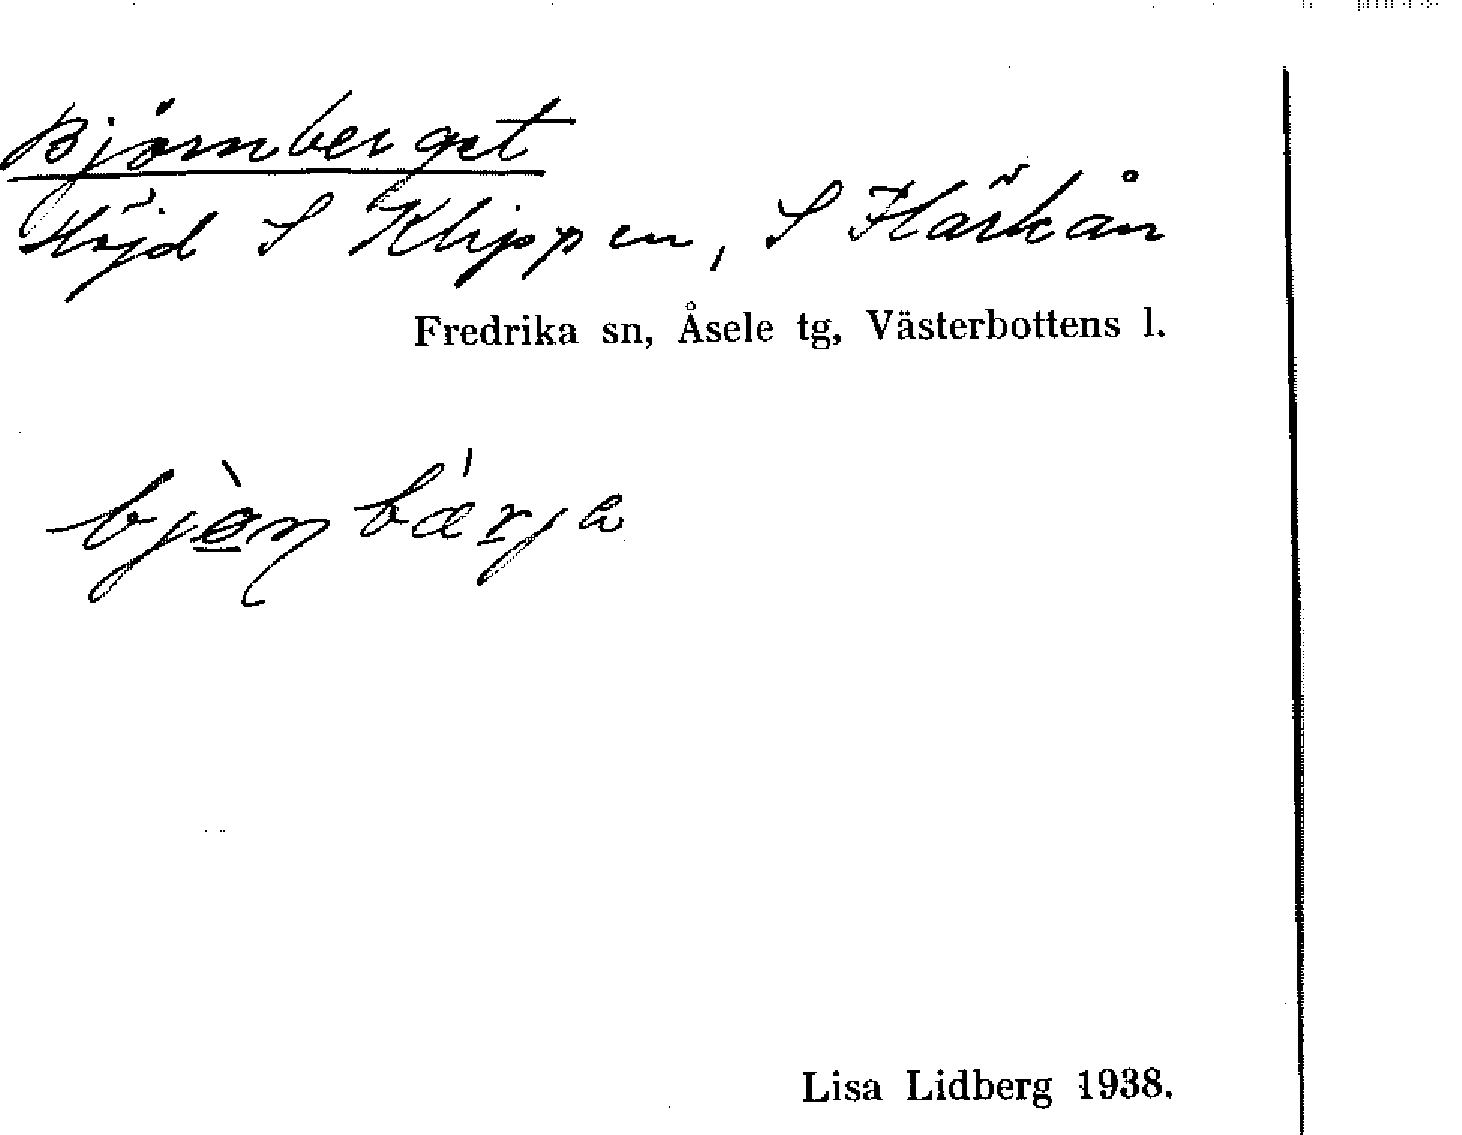 Björnberget
Höjd S Klippen, S Härkån
Fredrika sn, Åsele tg, Västerbottens l.
Lisa Lidberg 1938.